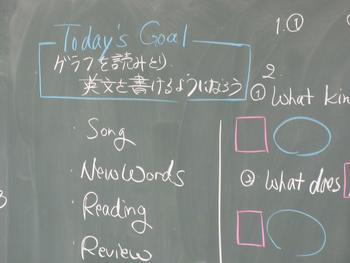 Today's Goal
グラフを読みとり、
英文を書けるようになろう
Song
New Words
Reading
Review
1. ①
2.
① What kin
② What does